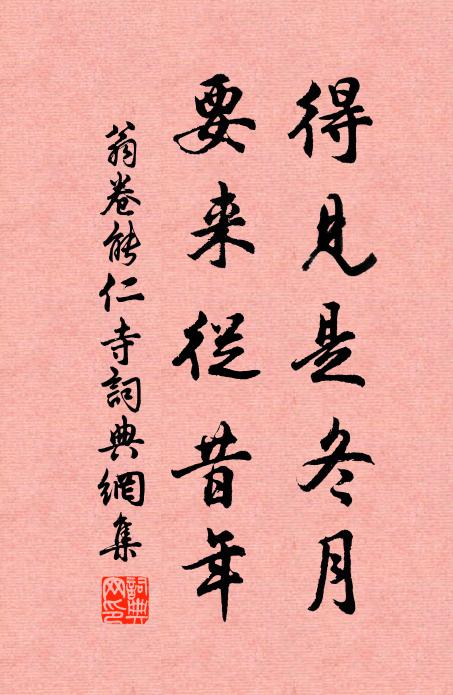 得見是冬月
要来從昔年
翁卷能仁寺詞典網集
詞典網印